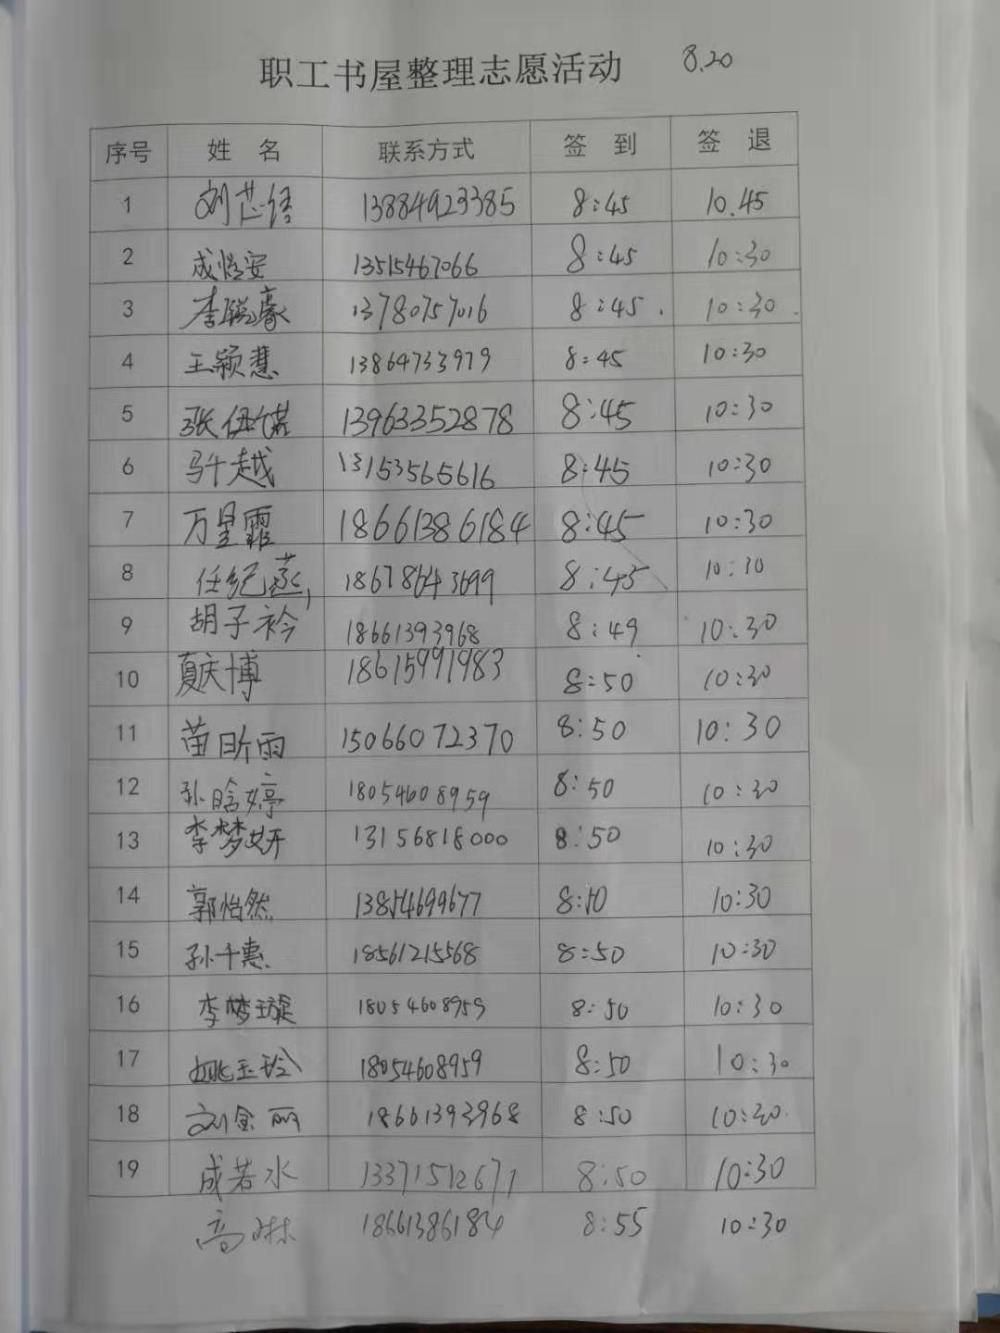 职工书屋整理志愿活动 8.20
序号 姓名 联系方式 签到 签退
1 刘芷语 13884923385 8:45 10.45
2 成怡安 13515467066 8:45 10:30
3 李聪豪 13780757016 8:45. 10:30.
4 王颖慧 13864733979 8:45 10:30
5 张 13963352878 8:45 10:30
6 越 13153565616 8:45 10:30
7 万星霏 18661386184 8:45 10:30
8 任纪 18678643699 8:45 10:30
9 胡子衿 18661393968 8:49 10:30
10 夏庆博 18615991983 8:50 10:30
11 苗昕雨 15066072370 8:50 10:30
12 孙晗婷 18054608959 8:50 10:30
13 李梦妍 13156818000 8:50 10:30
14 郭怡然 13854699677 8:50 10:30
15 孙千惠 18561215568 8:50 10:30
16 李梦璇 18054608959 8:50 10:30
17 姚玉玲 18054608959 8:50 10:30
18 刘金丽 18661393968 8:50 10:30
19 成若水 13371512671 8:50 10:30
高琳 18661386184 8:55 10:30